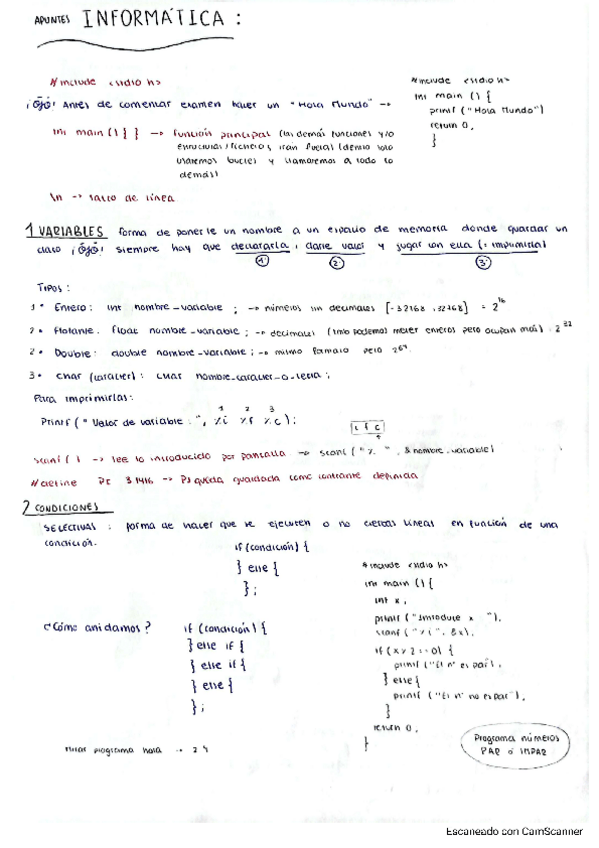 APUNTES INFORMÁTICA :
#include <stdio h>
¡Ojo! Antes de comenzar examen hacer un "Hola Mundo" →
#include <stdio h>
int main () {
printf ("Hola Mundo")
return 0,
}
int main () { } → función principal (las demás funciones y/o
estructuras/ficheros, irán fuera) (dentro solo
usaremos bucles y llamaremos a todo lo
demás)
\n → salto de línea
1 VARIABLES forma de ponerle un nombre a un espacio de memoria donde guardar un
dato ¡Ojo! siempre hay que declararla, darle valor y jugar con ella (: imprimirla)
1 2 3
TIPOS :
1 • Entero : int nombre_variable ; → números sin decimales [-32768 , 32768] = 2^16
2 • Flotante : float nombre_variable ; → decimales (tmb podemos meter enteros pero ocupan más) . 2^32
2 • Double : double nombre_variable ; → mismo formato pero 2^64
3 • Char (carácter) : char nombre_caracter_o_letra ;
Para imprimirlas :
1 2 3
Printf (" Valor de variable : ", %i %f %c) ;
i f c
scanf ( ) → lee lo introducido por pantalla → scanf ("% ", & nombre_variable)
#define PI 3.1416 → PI queda guardada como constante definida
2 CONDICIONES
SELECTIVAS : forma de hacer que se ejecuten o no ciertas líneas en función de una
condición.
if (condición) {
} else {
} ;
¿Cómo anidamos ?
if (condición) {
} else if {
} else if {
} else {
} ;
#include <stdio h>
int main () {
int x ,
printf ("Introduce x ") ,
scanf ("%i", &x) ,
if (x % 2 == 0) {
printf ("El nº es par") ,
} else {
printf ("El nº no es par") ,
}
return 0 ,
}
Programa números
PAR o IMPAR
programa hora
Escaneado con CamScanner